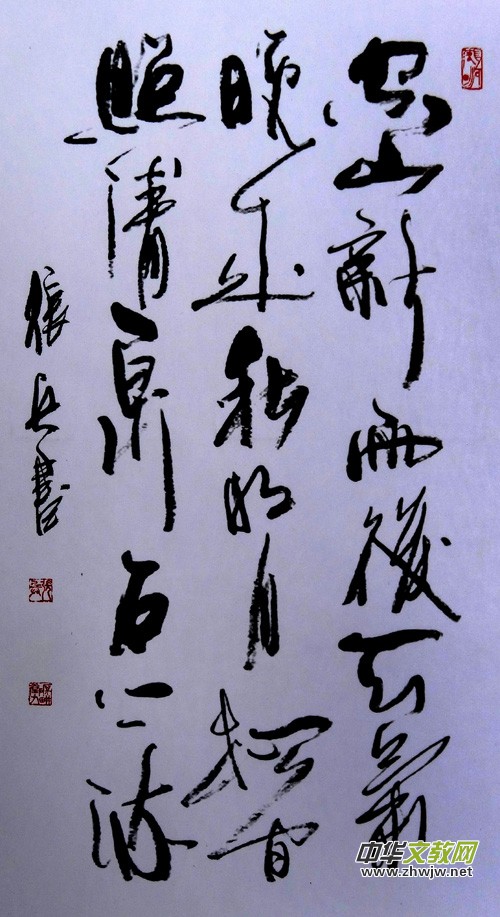 空山新雨後天氣
晚來秋明月松間
照清泉石上流
張兵書
中华文教网
www.zhwjw.net